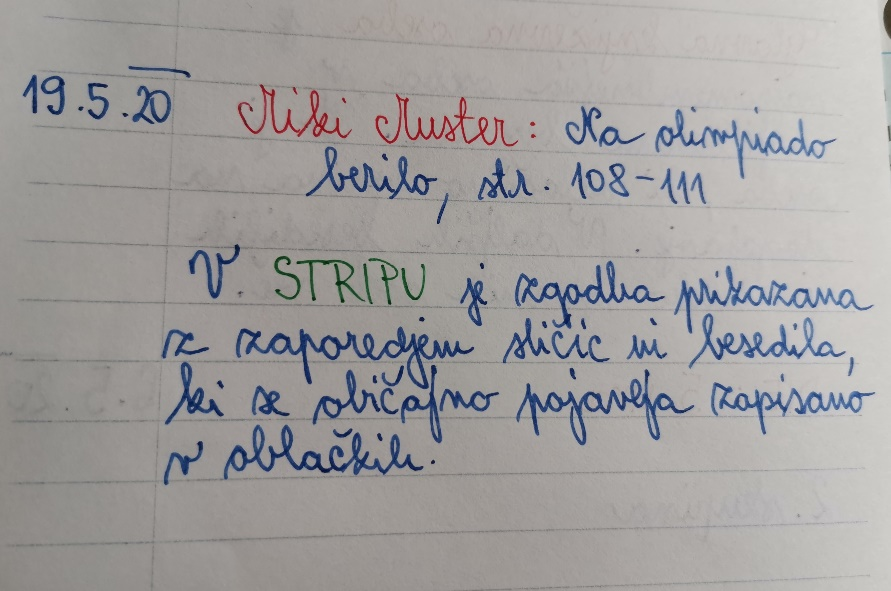 19.5.20 Miki Muster: Na olimpiado
berilo, str. 108-111
V STRIPU je zgodba prikazana
z zaporedjem sličic in besedila,
ki se običajno pojavlja zapisano
v oblačkih.